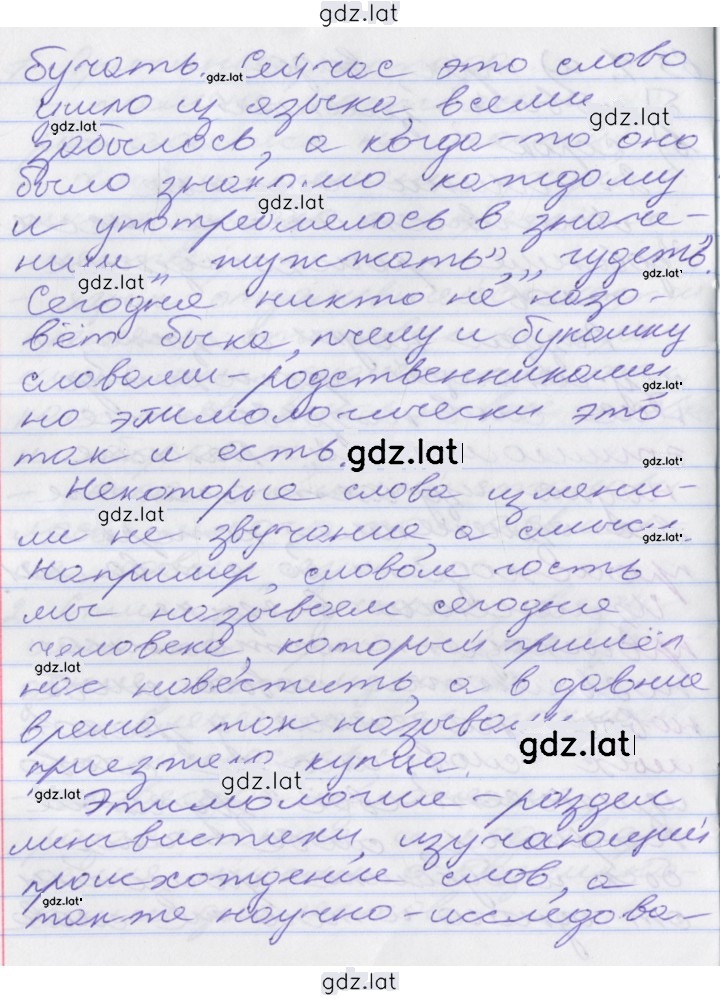 gdz.lat
бучать. Сейчас это слово
ушло из языка, всеми
забылось, а когда то оно
было знакомо каждому
и употреблялось в значе-
нии „жужжать", „гудеть".
Сегодня никто не назо-
вёт быка, пчелу и букашку
словами-родственниками
но этимологически это
так и есть.
Некоторые слова измени-
ли не звучание, а смысл.
Например, словом гость
мы называем сегодня
человека, который пришёл
нас навестить, а в давние
время так называли
приезжего купца.
Этимология - раздел
лингвистики, изучающий
происхождение слов, а
также научно-исследова-
gdz.lat